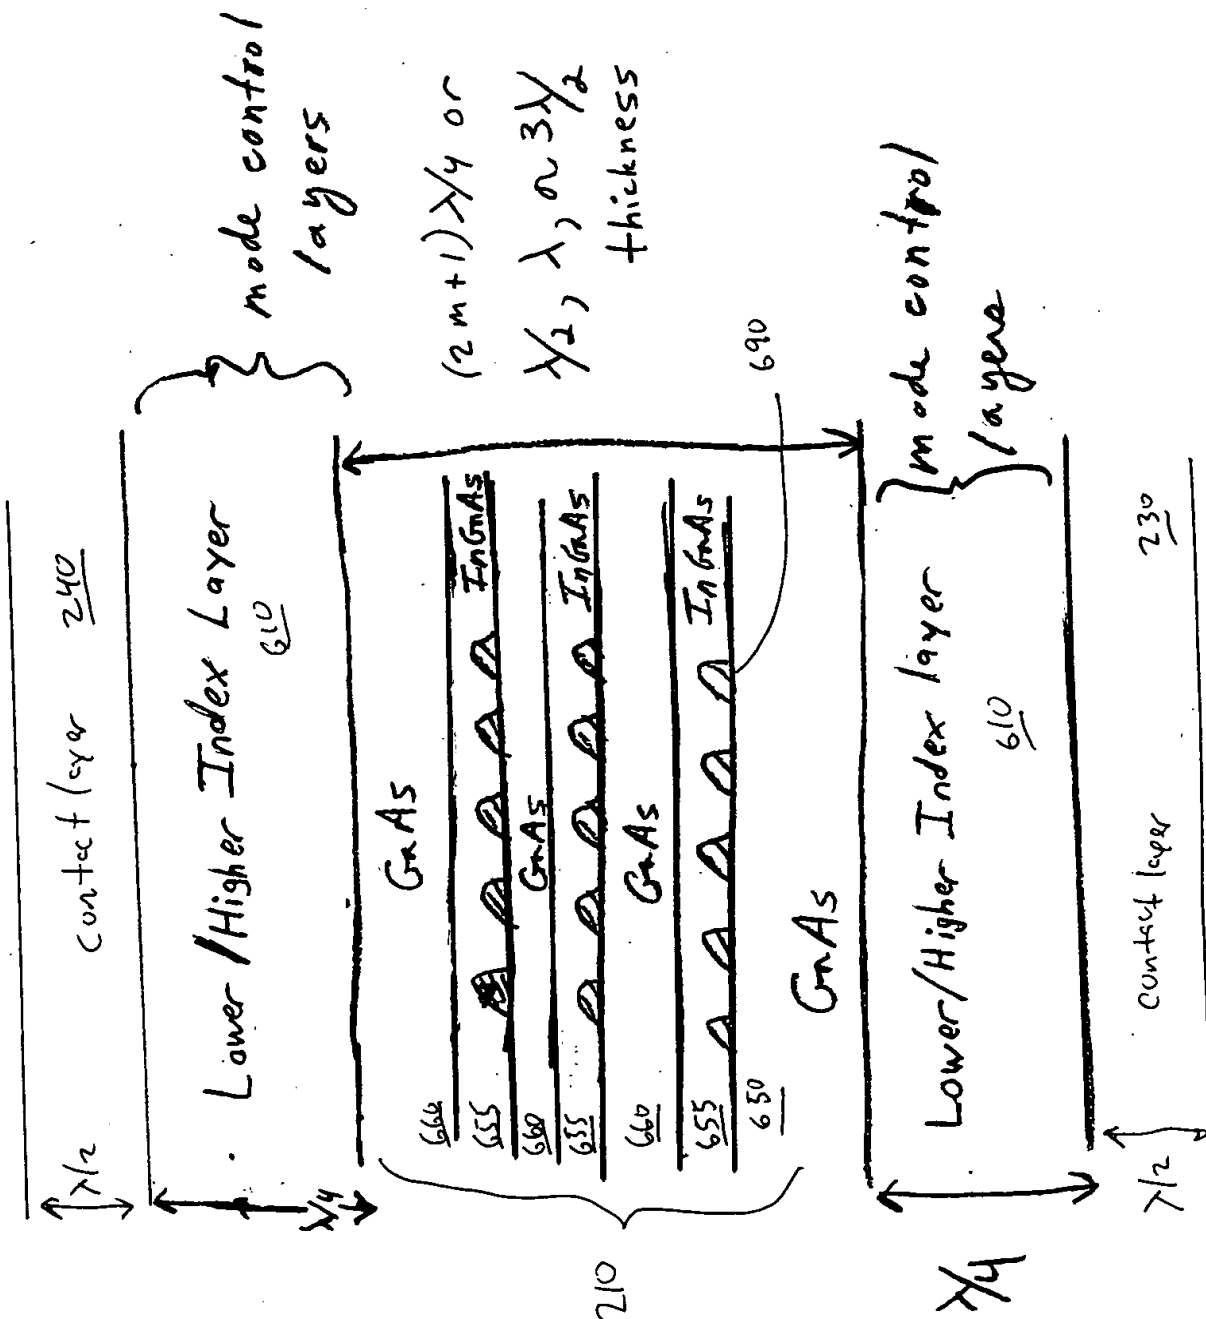 λ/2
contact layer 240
Lower/Higher Index Layer
610
λ/4
mode control
layers
GaAs
660
655 InGaAs
660 GaAs
655 InGaAs
660 GaAs
655 InGaAs
650
GaAs
210
690
(2m+1) λ/4 or
λ/2, λ, or 3λ/2
thickness
Lower/Higher Index layer
610
λ/4
mode control
layers
λ/2
contact layer 230